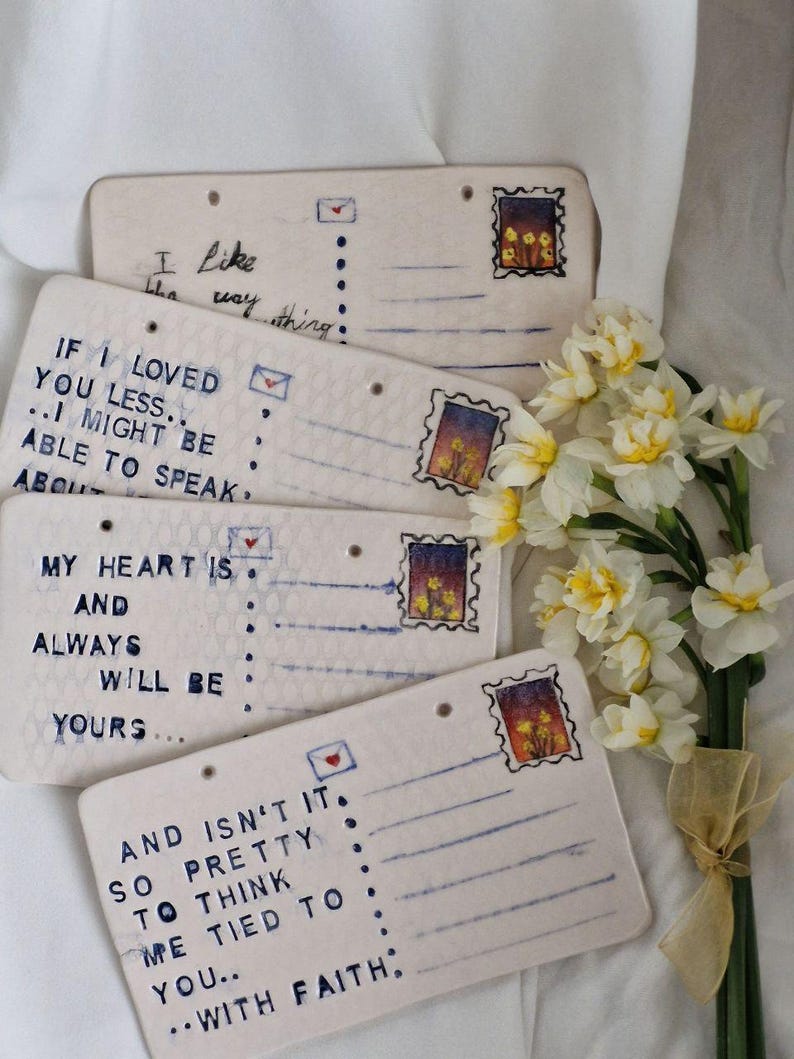 I like
the way
thing
IF I LOVED
YOU LESS..
..I MIGHT BE
ABLE TO SPEAK
ABOUT
MY HEART IS
AND
ALWAYS
WILL BE
YOURS...
AND ISN'T IT
SO PRETTY
TO THINK
ME TIED TO
YOU..
..WITH FAITH